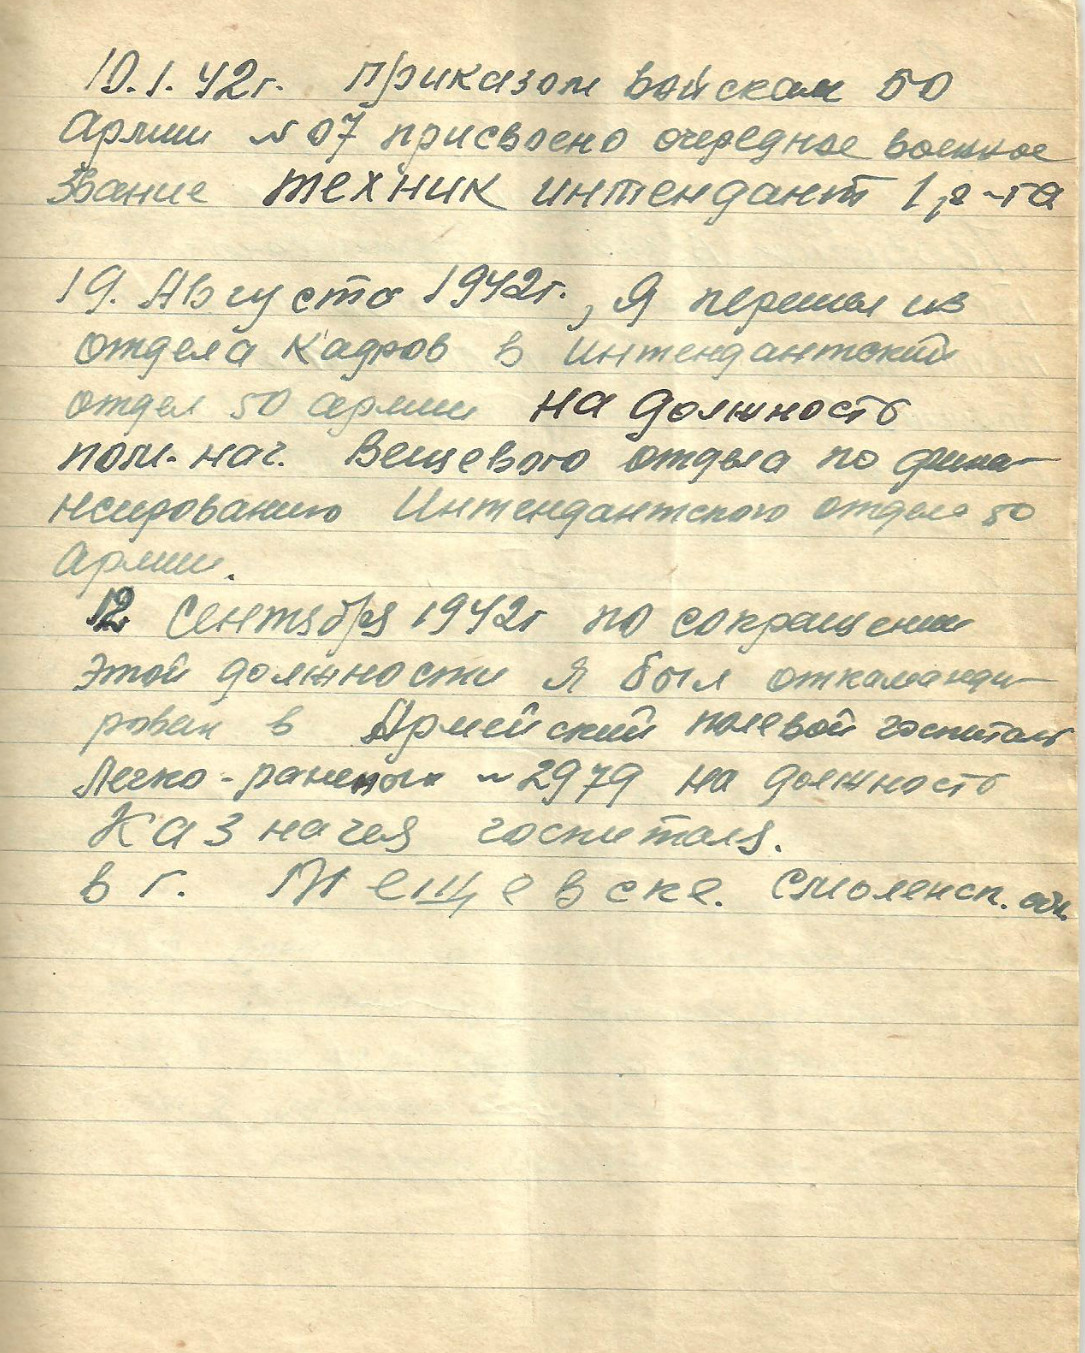 10.1.42г. Приказом войскам 50
Армии №07 присвоено очередное военное
звание техник интендант 1 р-га
19. Августо 1942г., Я перешел из
отдела Кадров в Интендантский
отдел 50 армии на должность
пом. нач. Вещевого отдела по фина-
нсированию Интендантского отдела 50
Армии.
12 Сентября 1942г по сокращении
этой должности я был откаманди-
рован в Армейский полевой госпиталь
Легко-раненых №2979 на должность
Казначея госпиталя.
в г. Мещевске. Смоленск. обл.